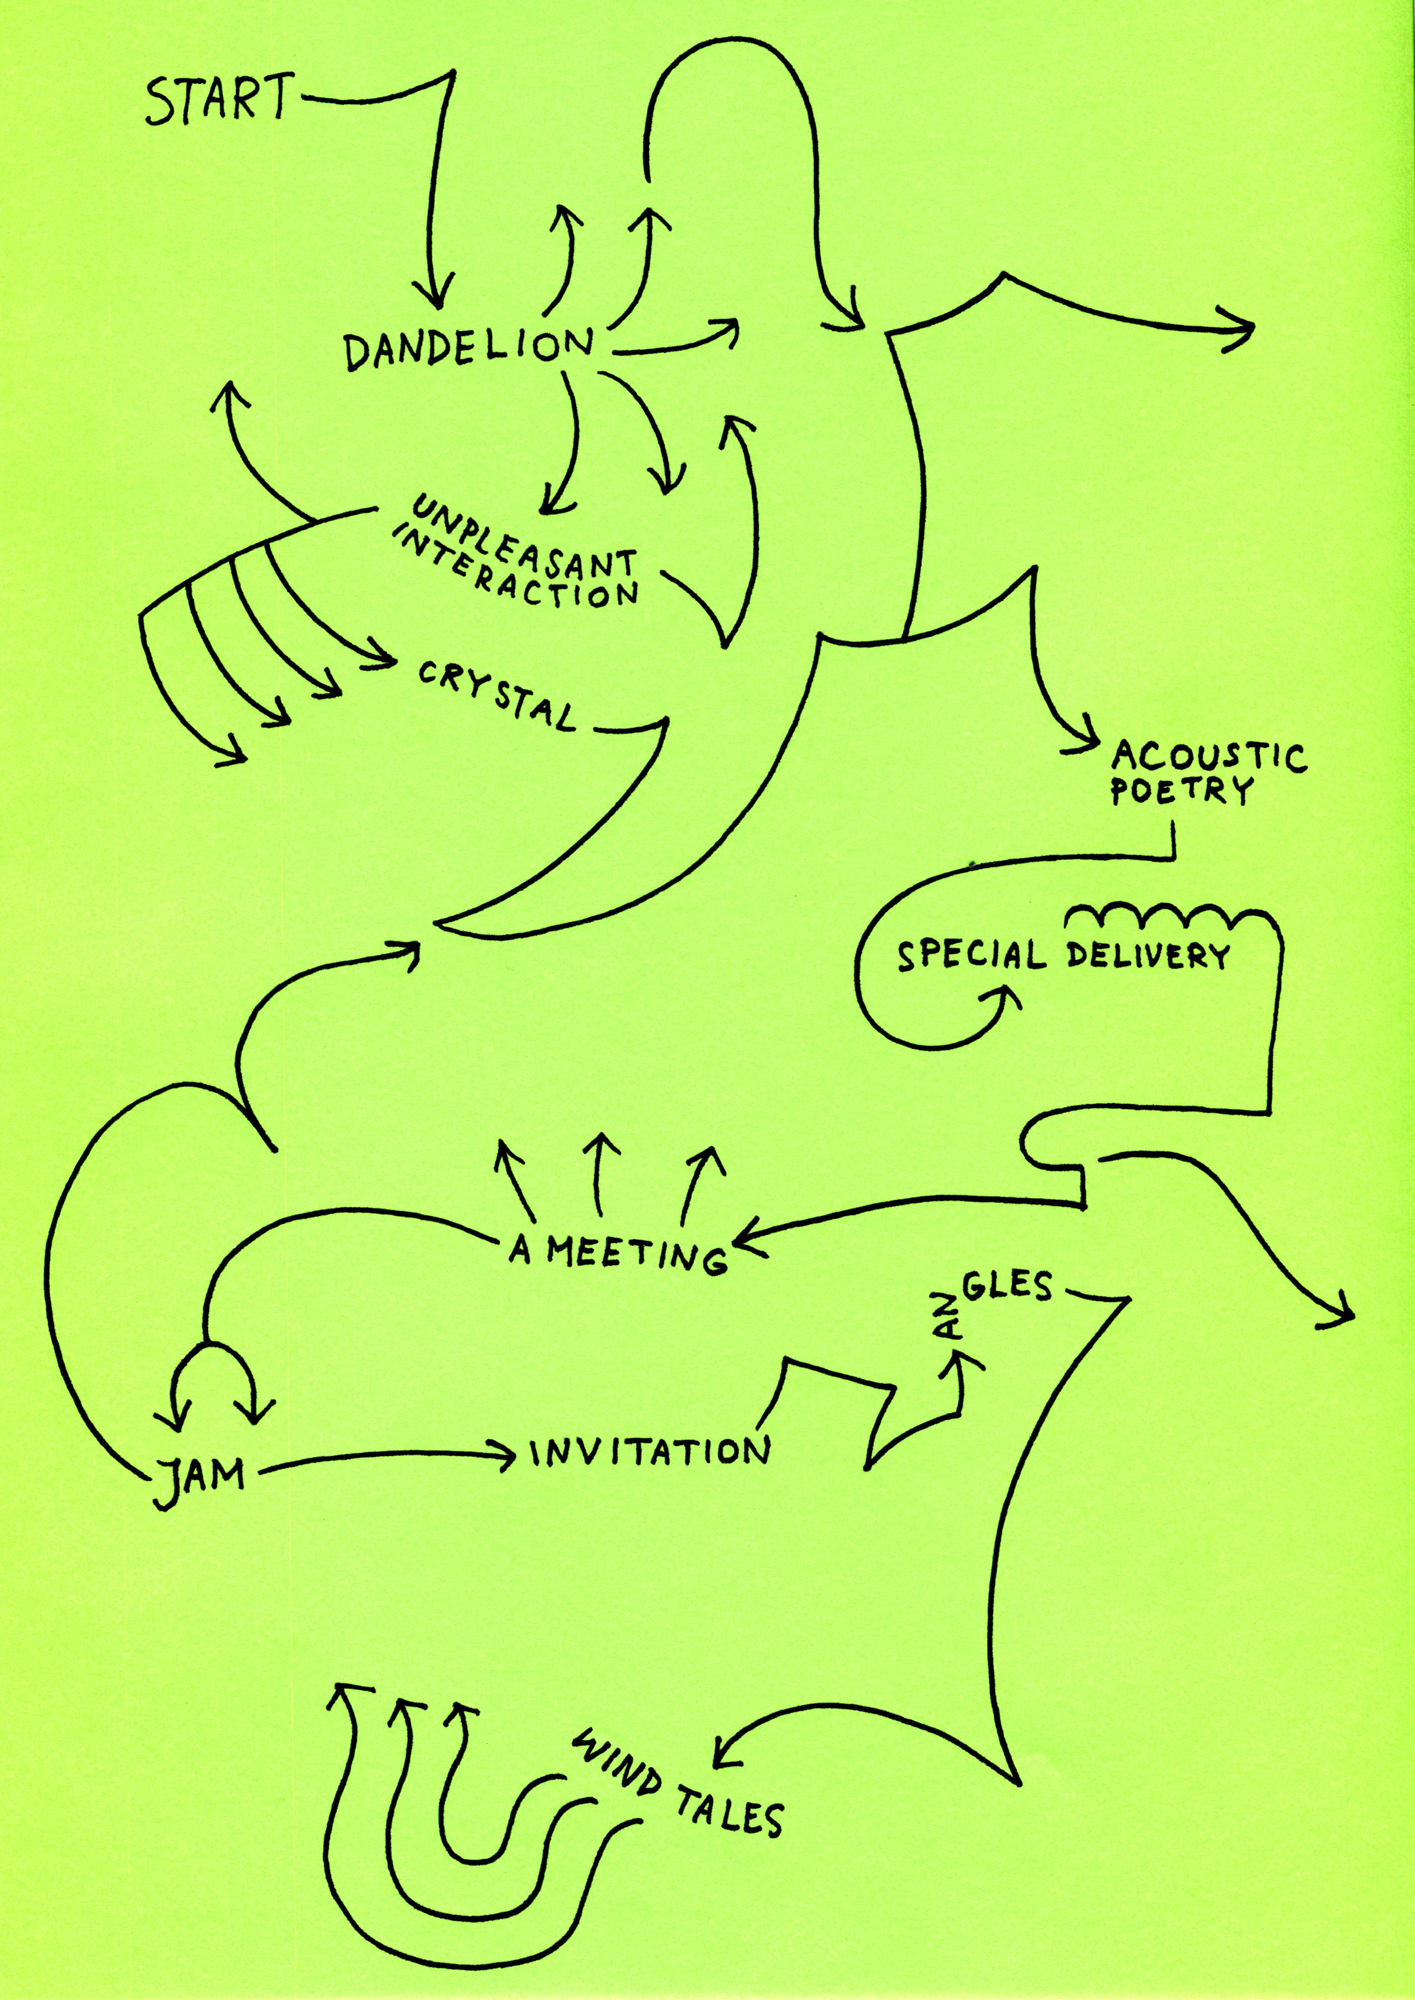 START
DANDELION
UNPLEASANT
INTERACTION
CRYSTAL
ACOUSTIC
POETRY
SPECIAL DELIVERY
A MEETING
ANGLES
JAM
INVITATION
WIND TALES